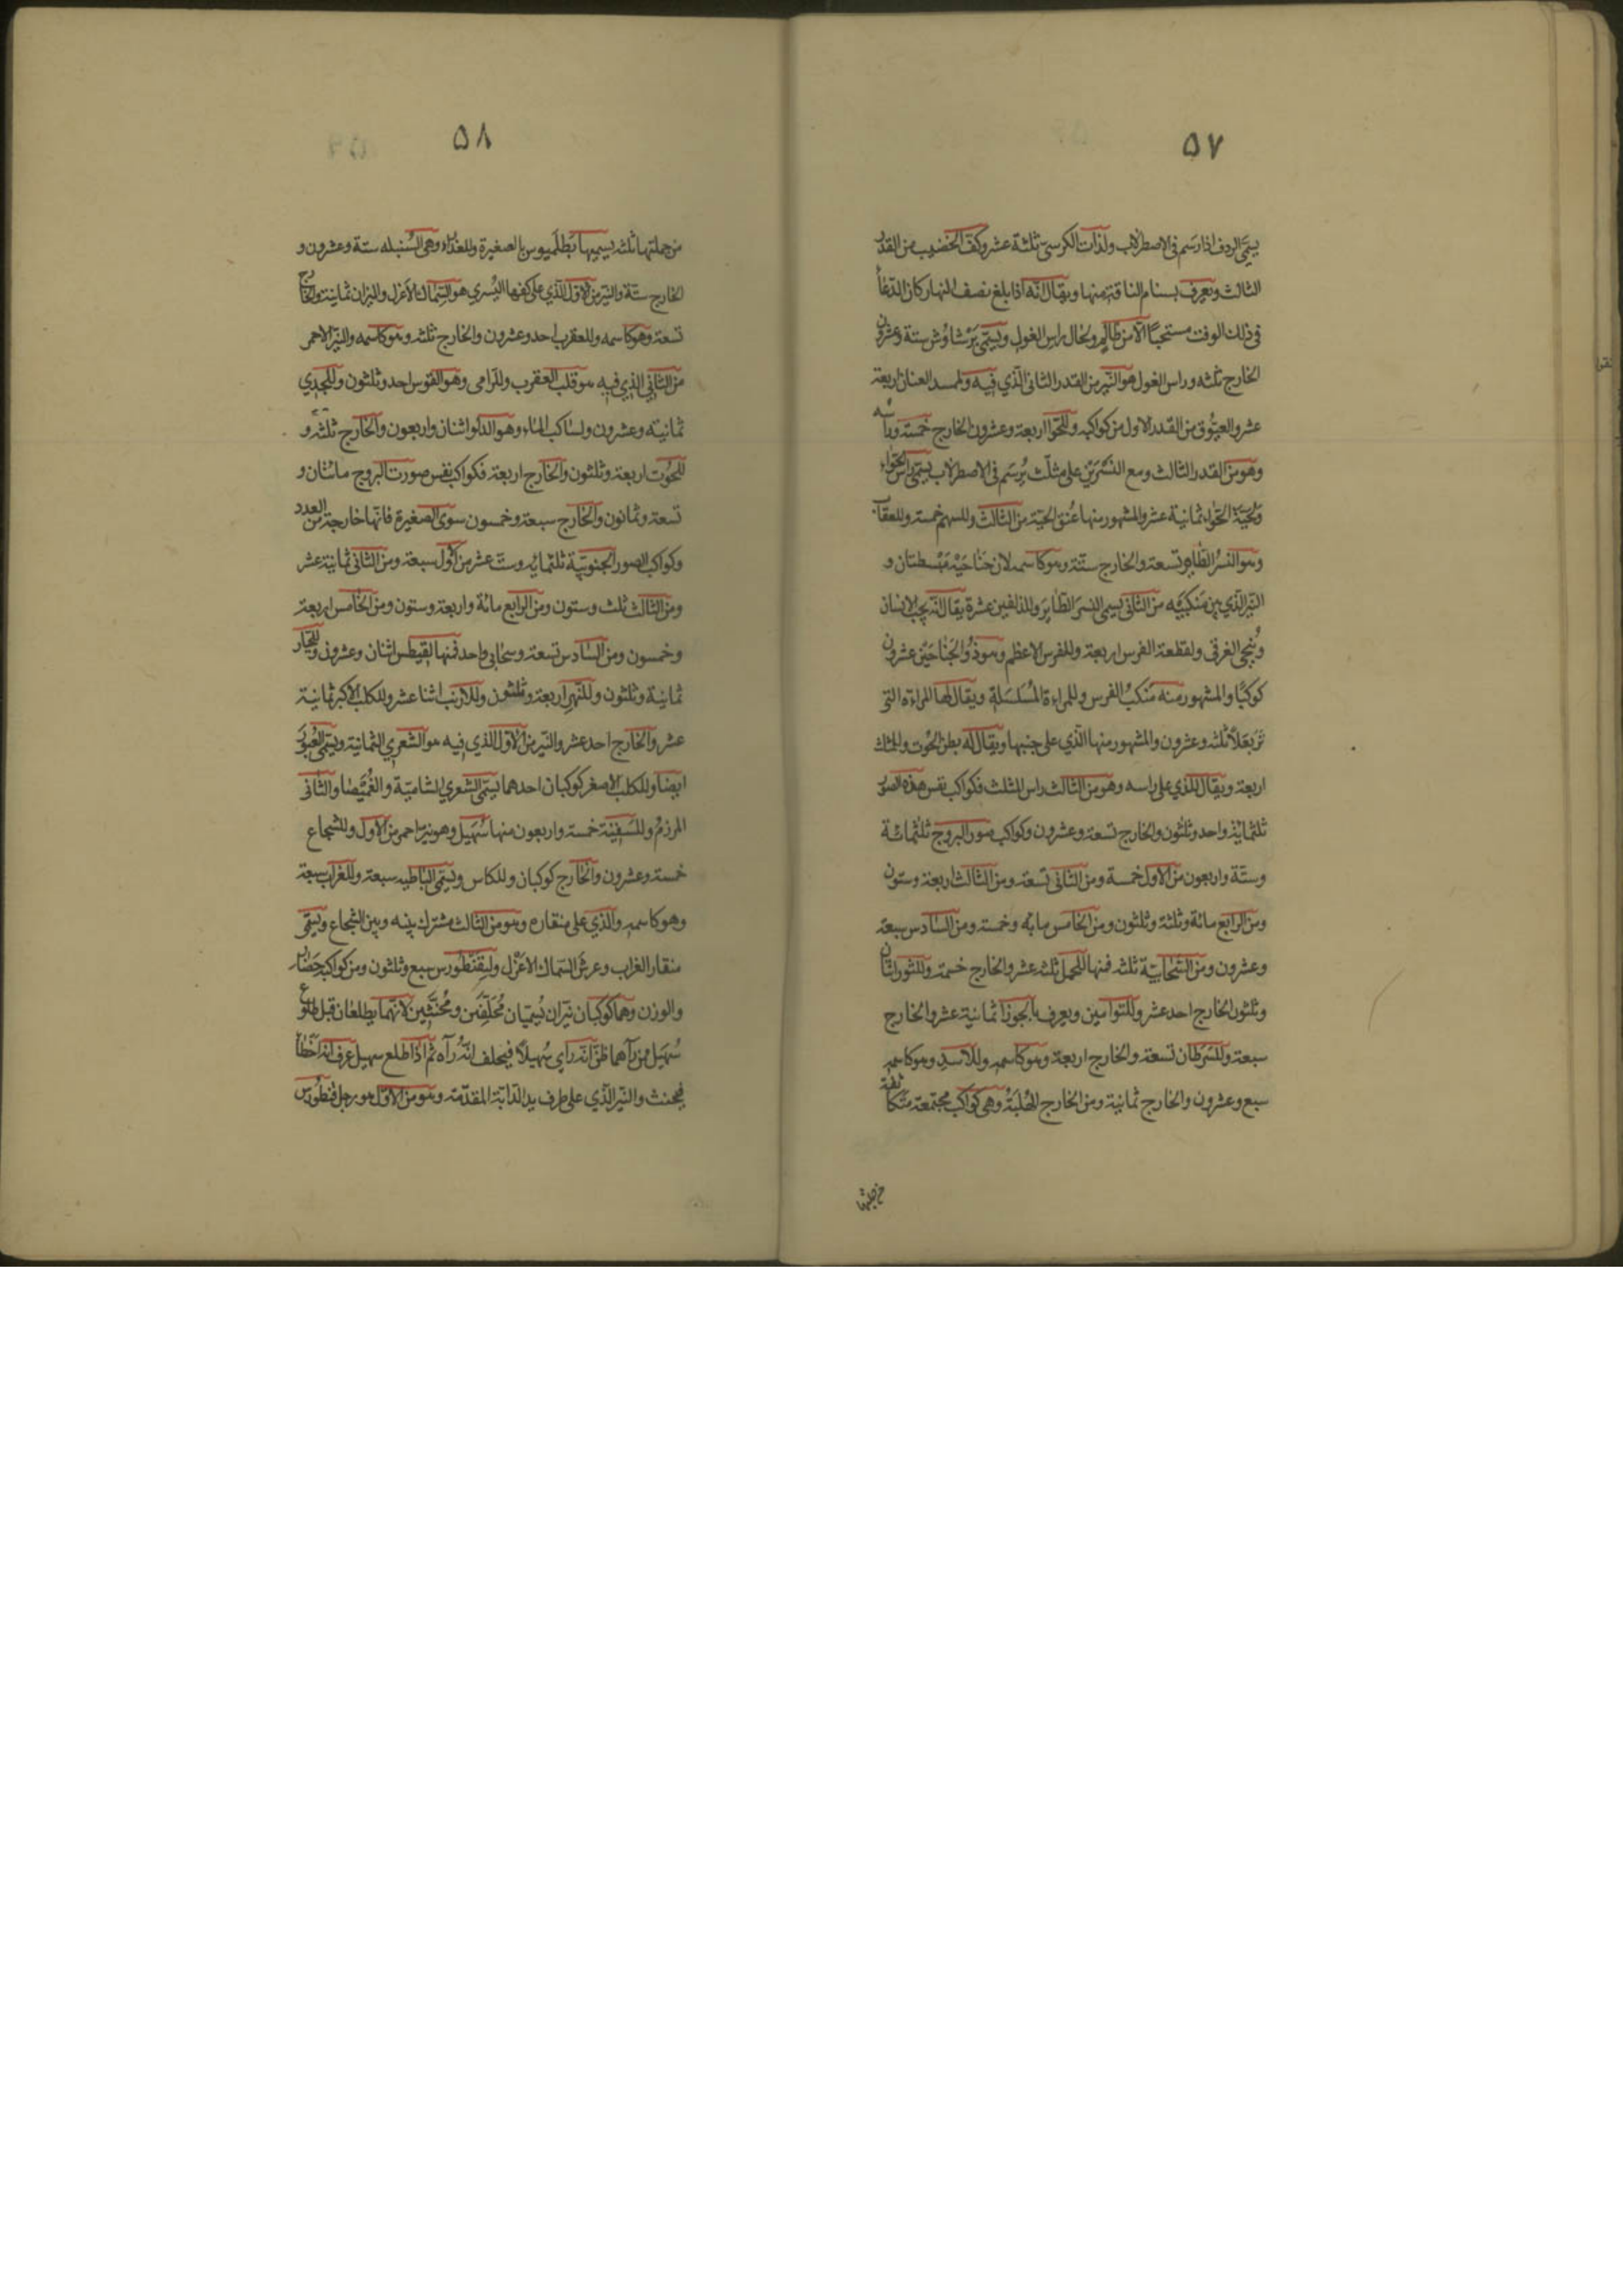 ٥٧
يسمى الردف اذا رسم فى الاصطرلاب ولذات الكرسىّ ثلثة عشر وكف الخضيب من القدر
الثالث ويعرف بسنام الناقة منها ويقال انّه اذا بلغ نصف النهار كان الدّعاء
فى ذلك الوقت مستجابًا الّا من ظالم ولحال راس الغول ويسمّى برشاوش ستة وعشرون
الخارج ثلثه وراس الغول هو النّير من القدر الثانى الّذي فيه ولممسد العنان اربعة
عشر والعيّوق من القدر الاول من كواكبه وللحوّا اربعة وعشرون الخارج خمسة وراسه
وهو من القدر الثالث ومع النَّسْرَيْن على مثلّث يُرسَم فى الاصطرلاب يسمّى راس الحوّاء
ولحيّة الحوّاء ثمانية عشر والمشهور منها عُنق الحيّة من الثالث وللسهم خمسة وللعقاب
وهو النسرُ الطّاير تسعة والخارج ستّة وهو كاسمه لان جناحَيْه مَبْسطتان و
النيّر الّذي بين مَنكِبَيْه من الثانى يسمى النسرَ الطّايرَ وللدلفين عشرة يقال انّه يحبّ الانسان
ويُنجى الغرقى ولقطعة الفرس اربعة وللفرس الاعظم وهو ذُو الجناحَيْن عشرون
كوكبًا والمشهور منه مَنكبُ الفرس وللمراءة المُسَلسَلةِ ويقال لها المراءة التى
لم تَرَ بَعَلاً ثلثه وعشرون والمشهور منها الّذي على جنبها ويقال له بطن الحُوت وللمثلث
اربعة ويقال للذي على راسه وهو من الثالث راس المثلث فكواكب نفس هذه الصور
ثلثمائة واحد وثلثون والخارج تسعة وعشرون وكواكب صور البروج ثلثمائة
وستّة واربعون من الاول خمسة ومن الثانى تسعة ومن الثالث اربعة وستون
ومن الرابع مائة وثلثة وثلثون ومن الخامس مايه وخمسة ومن السّادس سبعة
وعشرون ومن السّحابيّة ثلثه فمنها للحمل ثلثه عشر والخارج خمسة وللثور اثنان
وثلثون الخارج احد عشر وللتوامين ويعرف بالجوزا ثمانية عشر والخارج
سبعة وللسّرطان تسعة والخارج اربعة وهو كاسمه وللاسد وهو كاسمه
سبع وعشرون والخارج ثمانية ومن الخارج الهُلبَةُ وهى كواكب مجتمعة متكاثفة
من جملتها
٥٨
من جملتها ثلثه يسميها بُطلَميوس بالصغيرة وللعذراء وهى السُّنبله ستة وعشرون و
الخارج ستّة والنيّر من الاوّل الّذي على كفها اليُسرى هو السِّماك الاعزل وللميزان ثمانية والخارج
تسعة وهو كاسمه وللعقرب احد وعشرون والخارج ثلثه وهو كاسمه والنيّر الاحمر
من الثّانى الذي فيه هو قلب العقرب وللرامى وهو القوس احد وثلثون وللجدي
ثمانية وعشرون ولساكب الماء وهو الدلو اثنان واربعون والخارج ثلثه و
للحُوت اربعة وثلثون والخارج اربعة فكواكب نفس صورت البروج مائتان و
تسعة وثمانون والخارج سبعة وخمسون سوى الصغيرة فانّها خارجة من العدد
وكواكب الصور الجنوبيّة ثلثمائه وستّ عشر من الاول سبعة ومن الثانى ثمانية عشر
ومن الثالث ثلث وستون ومن الرابع مائة واربعة وستون ومن الخامس اربعة
وخمسون ومن السّادس تسعة وسحابى واحد فمنها لقيطس اثنان وعشرون وللجبّار
ثمانية وثلثون وللنّهر اربعة وثلثون وللارنب اثنا عشر وللكلب الاكبر ثمانية
عشر والخارج احد عشر والنيّر من الاوّل الّذي فيه هو الشعرى اليمانية ويسمّى العبور
ايضا وللكلب الاصغر كوكبان احدهما يسمّى الشعري الشاميّة والغُمَيْصَا والثّانى
المرزمُ وللسّفينة خمسة واربعون منها سُهَيل وهو نيّر احمر من الاول وللشجاع
خمسة وعشرون والخارج كوكبان وللكاس ويسمّى الباطيه سبعة وللغراب سبعة
وهو كاسمه والّذي على منقاره وهو من الثالث مشترك بينه وبين الشجاع ويسمّى
منقار الغراب وعرش السّماك الاعزل ولقنطورس سبع وثلثون ومن كواكبه حَضار
والوزن وهما كوكبان نيّران يُسمّيان مُحَلِّفَين ومُحَنِّثَين لانّهما يطلعان قبل طلوع
سُهَيل من رآهما ظنّ انّه راي سُهيلاً فيحلف انّه رآه ثم اذا طلع سهيل عرف انّه اخطأ
فيحنث والنيّر الّذي على طرف يد الدّابّة المقدّمة وهو من الاوّل هو رجل قنطورس